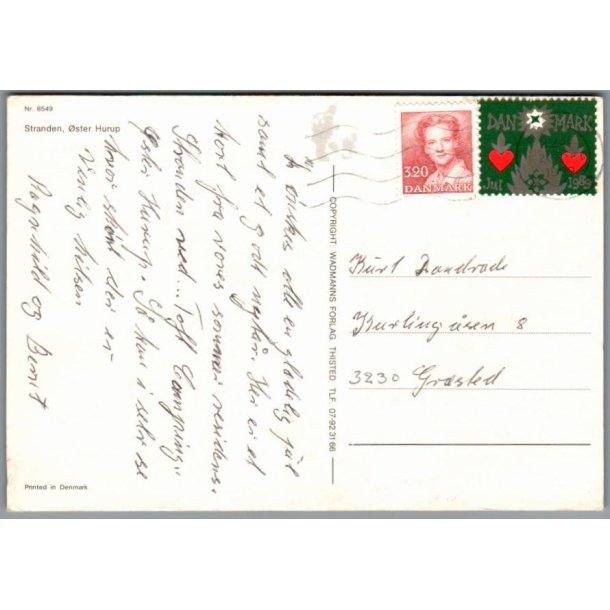 Nr. 8549
Stranden, Øster Hurup
I ønskes alle en glædelig jul
samt et godt nytår. Her er et
kort fra vores sommer residens.
Stranden ved... Toft Camping..
Øster Hurup. Så kan i selv se
hvor skønt der er
Venlig hilsen
Ragnhild og Bernt
Printed in Denmark
COPYRIGHT: WADMANNS FORLAG, THISTED TLF. 07-92 31 66
3.20
DANMARK
DANMARK
Jul 1985
Kurt
8
3230 Græsted